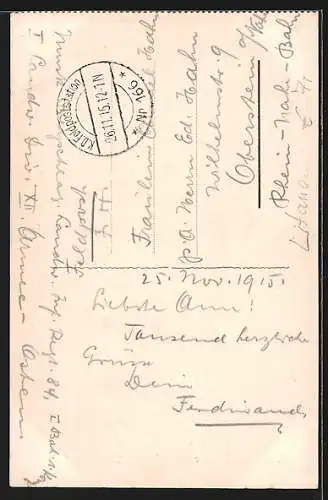 K.D. Feldpoststation
26.11.15. 12-1N
* № 166 *
Feldpost
Fräulein Hahn
p. a. Herrn Ed. Hahn
Wilhelmstr. 9
Oberstein a/Nahe
Rhein-Nahe-Bahn
Landw. Inf. Regt. 84. I Bat.
I Landw. Div. XII Armee - Osten.
25. Nov. 1915.
Liebste Ann!
Tausend herzliche
Grüsse
Dein
Ferdinand